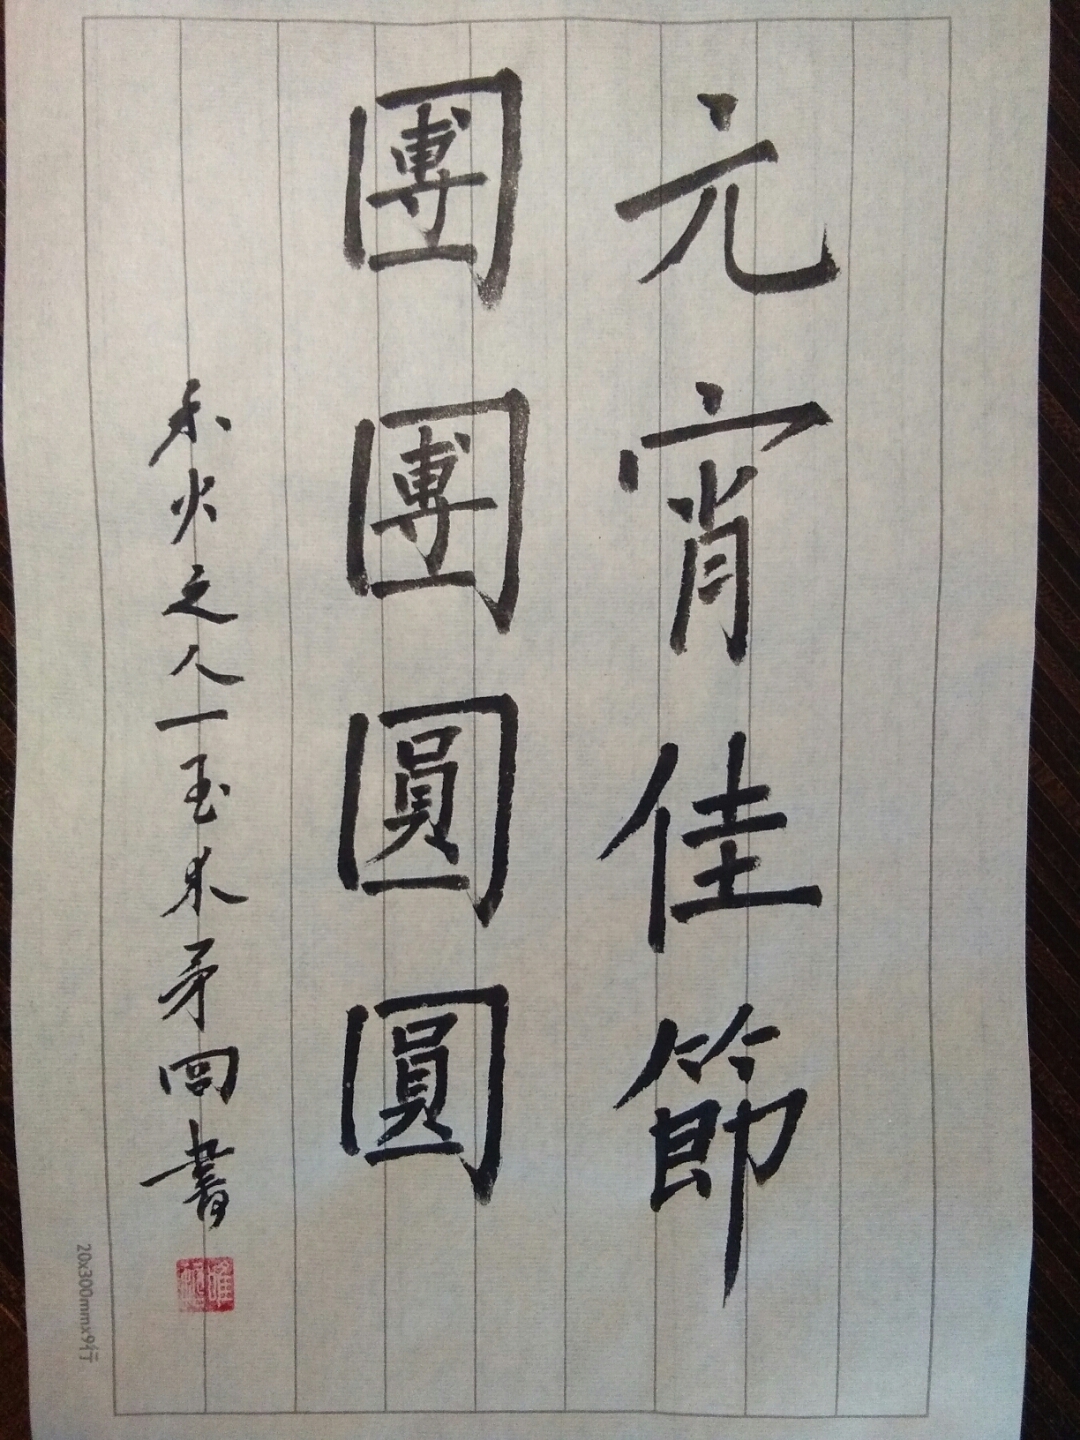 元宵佳節
團團圓圓
禾火之人一玉木矛回書
20x300mmx9行